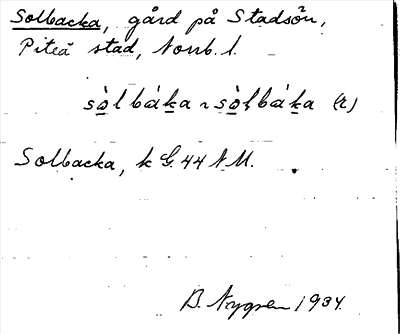 Solbacka, gård på Stadsön,
Piteå stad, Norrb. l.
sòlbáka ~ sòḷbáka (r)
Solbacka, k G. 44 N.M.
B. Nygren 1934.